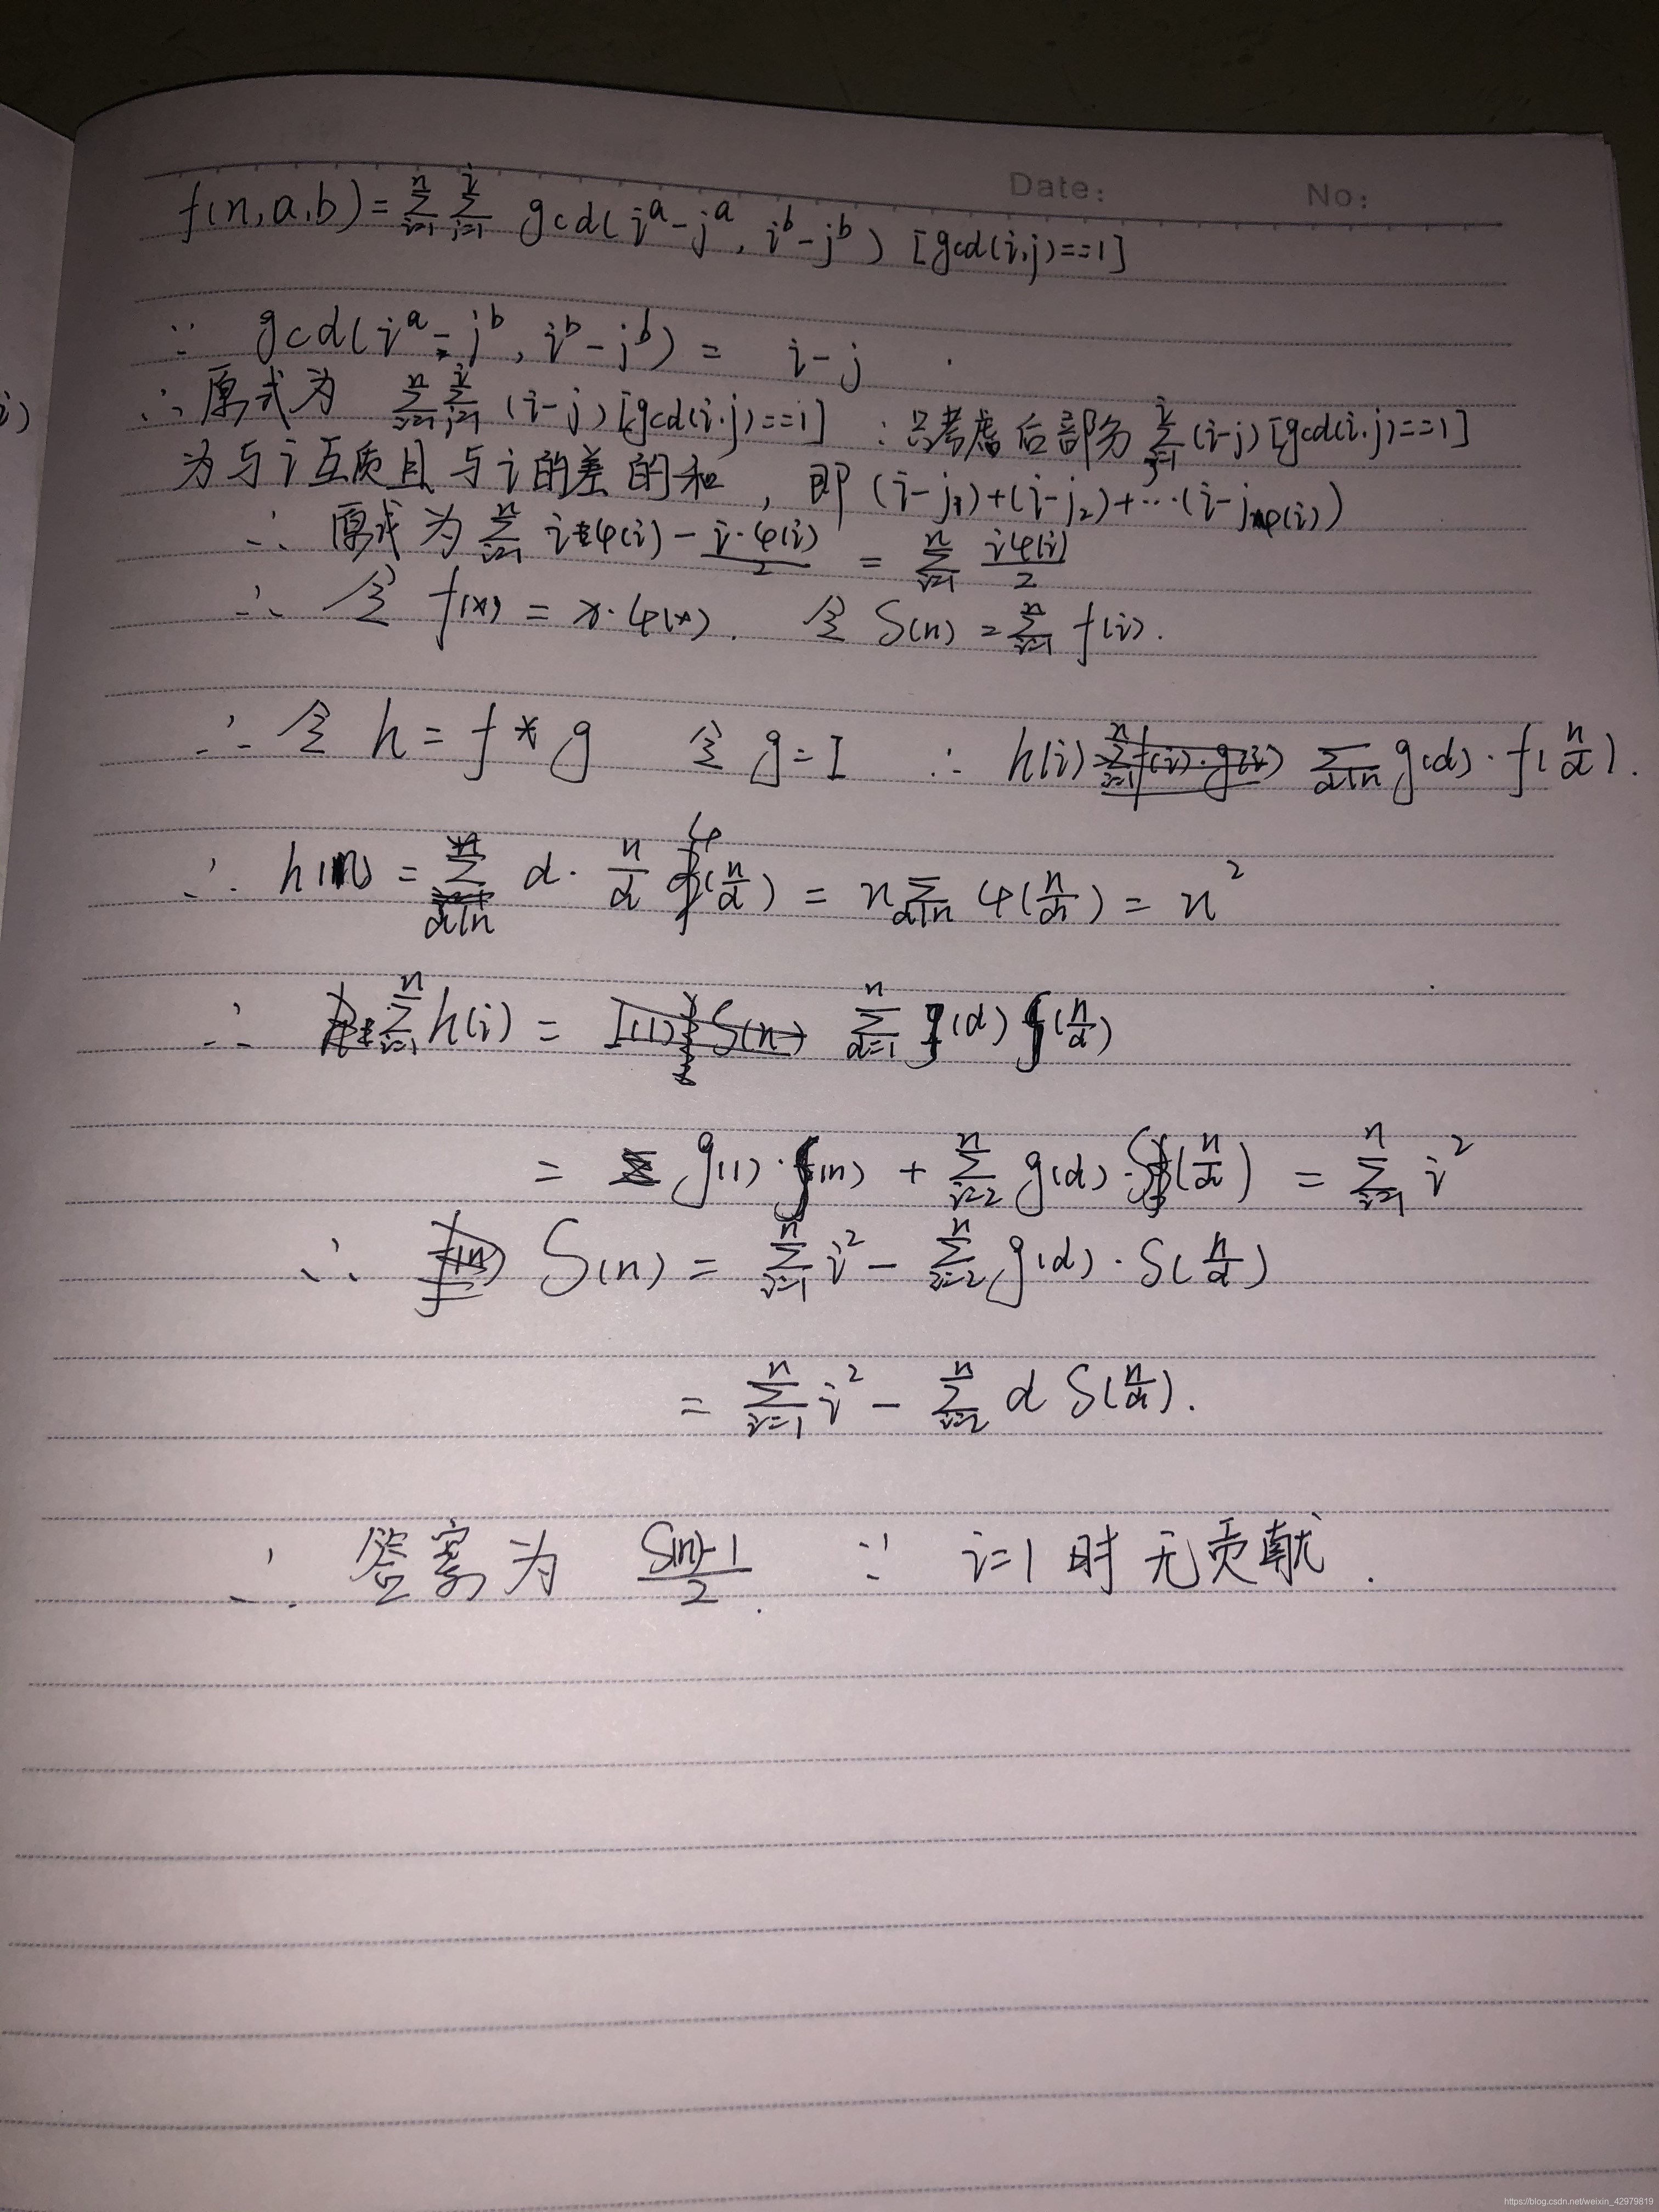 Date: No:
f(n,a,b)=∑_{i=1}^{n}∑_{j=1}^{i} gcd(i^a-j^a, i^b-j^b) [gcd(i,j)==1]
∵ gcd(i^a-j^b, i^b-j^b) = i-j
i)
∴ 原式为 ∑_{i=1}^{n}∑_{j=1}^{i} (i-j)[gcd(i,j)==1] ∵只考虑后部分 ∑_{j=1}^{i}(i-j)[gcd(i,j)==1]
为与i互质且与i的差的和, 即 (i-j_1)+(i-j_2)+…(i-j_{φ(i)})
∴ 原式为 ∑_{i=1}^{n} i*φ(i) - \frac{i·φ(i)}{2} = ∑_{i=1}^{n} \frac{iφ(i)}{2}
∴ 令 f(x) = x·φ(x). 令 S(n) = ∑_{i=1}^{n} f(i).
∴ 令 h = f * g 令 g=I ∴ h(i) = ∑_{d|n} g(d)·f(\frac{n}{d}).
∴ h(n) = ∑_{d|n} d·\frac{n}{d} φ(\frac{n}{d}) = n∑_{d|n} φ(\frac{n}{d}) = n^2
∴ ∑_{i=1}^{n} h(i) = ∑_{d=1}^{n} g(d) S(\frac{n}{d})
= g(1)·S(n) + ∑_{i=2}^{n} g(d)·S(\frac{n}{d}) = ∑_{i=1}^{n} i^2
∴ S(n) = ∑_{i=1}^{n} i^2 - ∑_{i=2}^{n} g(d)·S(\frac{n}{d})
= ∑_{i=1}^{n} i^2 - ∑_{i=2}^{n} d S(\frac{n}{d}).
∴ 答案为 \frac{S(n)-1}{2}. ∵ i=1时无贡献.
https://blog.csdn.net/weixin_42979819